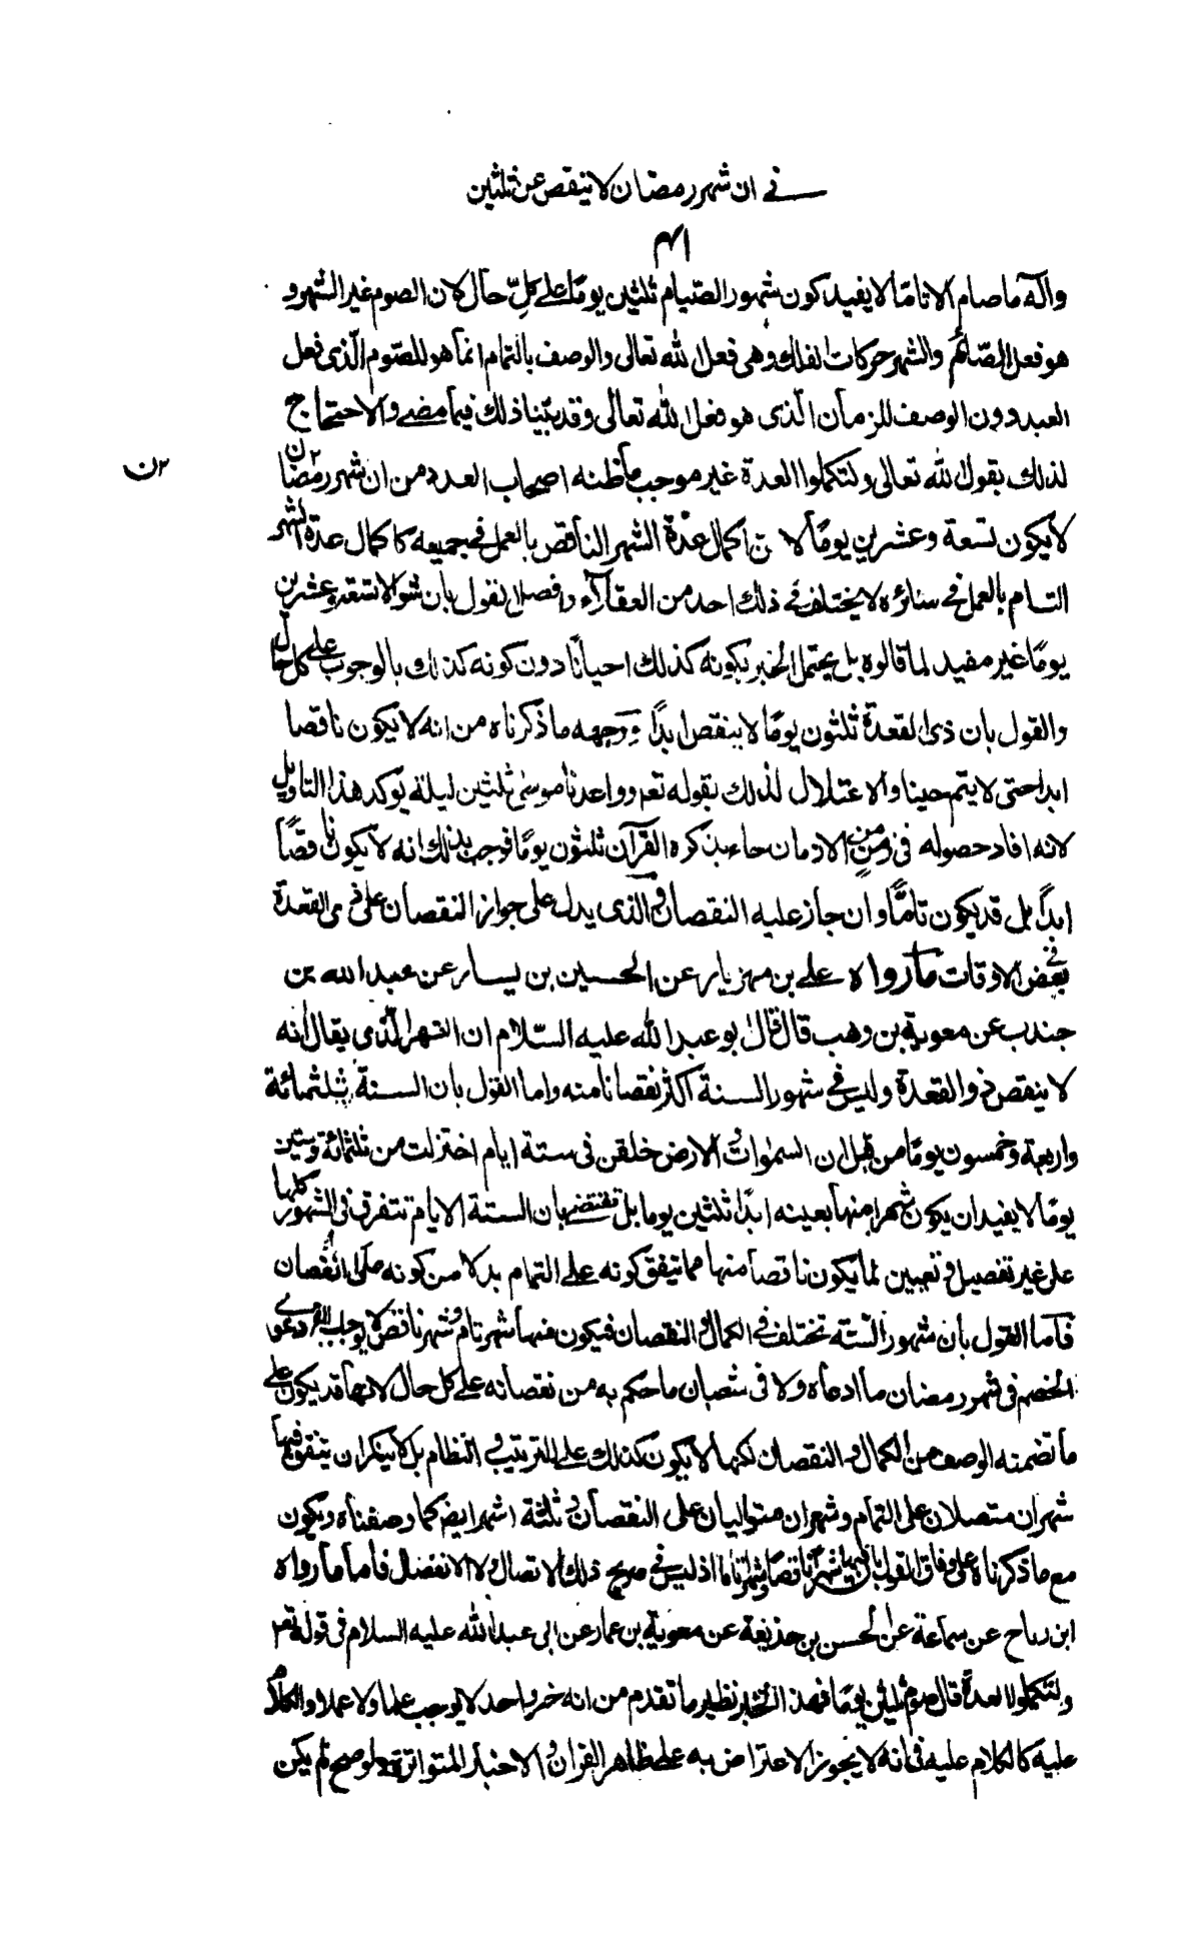 في ان شهر رمضان لا ينقص عن ثلثين
٤١
وآله ما صام الا تاما لا يفيد كون شهور الصيام ثلثين يومًا على كلّ حال لان الصوم غير الشهر و
هو فعل الصّائم والشهر حركات الفلك وهي فعل الله تعالى والوصف بالتمام انما هو للصّوم الّذي فعل
العبد دون الوصف للزمان الّذي هو فعل الله تعالى وقد بيّنا ذلك فيما مضى والاحتجاج
لذلك بقول الله تعالى ولتكملوا العدة غير موجب ما ظنه اصحاب العدد من ان شهر رمضان
٢ن
لا يكون تسعة وعشرين يومًا لان اكمال عدّة الشهر الناقص بالعمل في جميعه كاكمال عدة الشهر
التام بالعمل في سائره لا يختلف في ذلك احد من العقلاء وفصل القول بان شوالا تسعة وعشرين
يومًا غير مفيد لما قالوه بل يحتمل الخبر بكونه كذلك احيانًا دون كونه كذلك بالوجوب على كل حال
والقول بان ذي القعدة ثلثون يومًا لا ينقص ابدًا ووجهه ما ذكرناه من انه لا يكون ناقصا
ابدا حتى لا يتم حينا والاعتلال لذلك بقوله تعم وواعدنا موسى ثلثين ليلة يوكد هذا التاويل
لانه افاد حصوله في زمن من الازمان جاء بذكره القرآن ثلثون يومًا فوجب بذلك انه لا يكون ناقصًا
ابدًا بل قد يكون تامًّا وان جاز عليه النقصان والذي يدل على جواز النقصان على ذي القعدة
في بعض الاوقات ما رواه علي بن مهزيار عن الحسين بن يسار عن عبد الله بن
جندب عن معوية بن وهب قال قال ابو عبد الله عليه السّلام ان الشهر الّذي يقال انه
لا ينقص ذو القعدة وليس في شهور السنة اكثر نقصانا منه واما القول بان السنة ثلثمائة
واربعة وخمسون يومًا من قبل ان السموات والارض خلقن في ستة ايام اختزلت من ثلثمائة وستين
يومًا لا يفيد ان يكون شهر منها بعينه ابدًا ثلثين يوما بل تقتضي بان الستة الايام تتفرق في الشهور كلها
على غير تفصيل وتعيين لما يكون ناقصا منها مما يتفق كونه على التمام بدلا من كونه على النقصان
فاما القول بان شهور السّنة تختلف في الكمال والنقصان فيكون منها شهر تام وشهر ناقص لا يوجب دعوى
الخصم في شهر رمضان ما ادعاه ولا في شعبان ما حكم به من نقصانه على كل حال لانها قد يكون على
ما تضمنه الوصف من الكمال والنقصان لكنها لا يكون كذلك على الترتيب والنظام بل لا ينكر ان يتفق فيها
شهران متصلان على التمام وشهران متواليان على النقصان وثلثة اشهر ايضًا كما وصفناه ويكون
مع ما ذكرناه على وفاق القول بان فيها شهرًا ناقصًا وشهرًا تامًا اذ ليس في صريح ذلك الاتصال ولا الانفصال فاما ما رواه
ابن رباح عن سماعة عن الحسن بن حذيفة عن معوية بن عمار عن ابي عبد الله عليه السلام في قوله تعم
ولتكملوا العدة قال صوم ثلثين يومًا فهذا الخبر نظير ما تقدم من انه خبر واحد لا يوجب علما ولا عملا والكلام
عليه كالكلام عليه في انه لا يجوز الاعتراض به على ظاهر القران والاخبار المتواترة ولو صح لم يكن